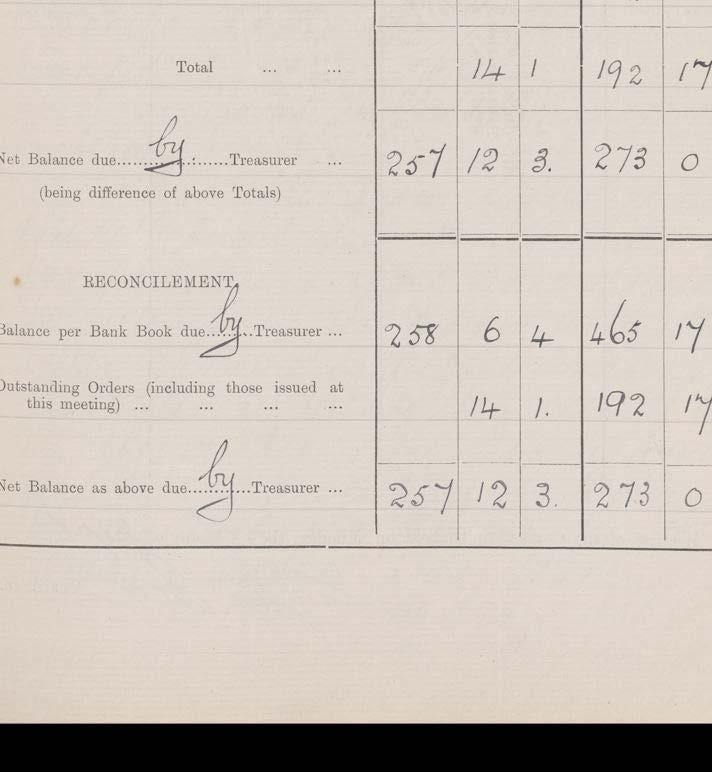 Total ... ... 14 1 192 17
Net Balance due by Treasurer ... 257 12 3. 273 0
(being difference of above Totals)
RECONCILEMENT,
Balance per Bank Book due by Treasurer ... 258 6 4 465 17
Outstanding Orders (including those issued at
this meeting) ... ... ... ... 14 1. 192 17
Net Balance as above due by Treasurer ... 257 12 3. 273 0